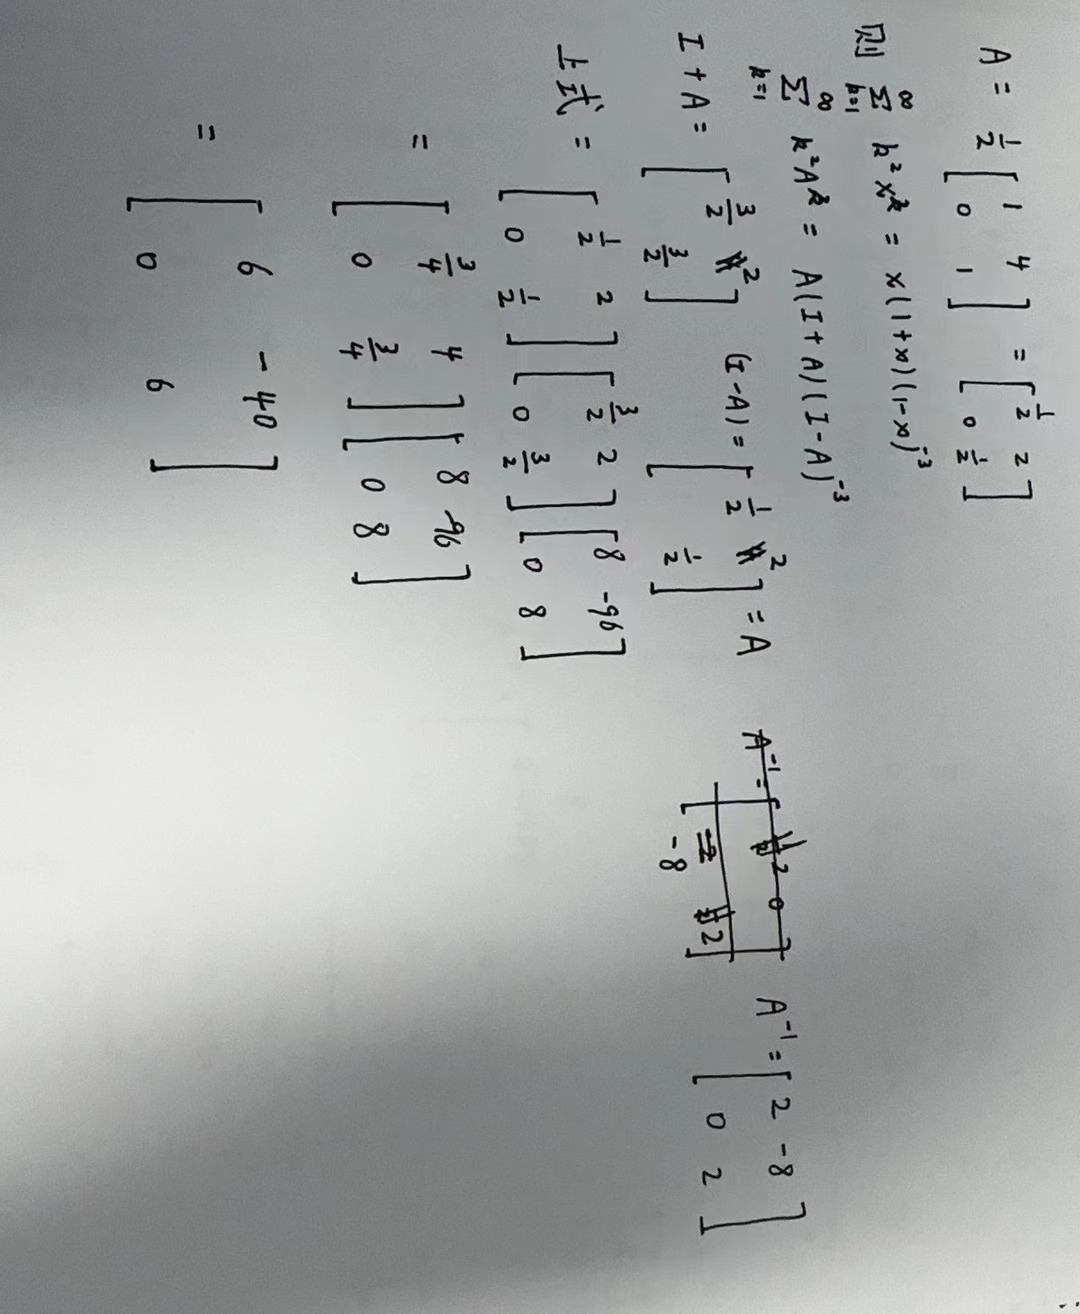 A = 1/2 [1 4; 0 1] = [1/2 2; 0 1/2]
则 ∑_{k=1}^{∞} k²x^k = x(1+x)(1-x)^{-3}
∑_{k=1}^{∞} k²A^k = A(I+A)(I-A)^{-3}
I+A = [3/2 2; 3/2] (I-A) = [1/2 2; 1/2] = A A^{-1} = [2 0; -8 2] A^{-1} = [2 -8; 0 2]
上式 = [1/2 2; 0 1/2] [3/2 2; 0 3/2] [8 -96; 0 8]
= [3/4 4; 0 3/4] [8 -96; 0 8]
= [6 -40; 0 6]